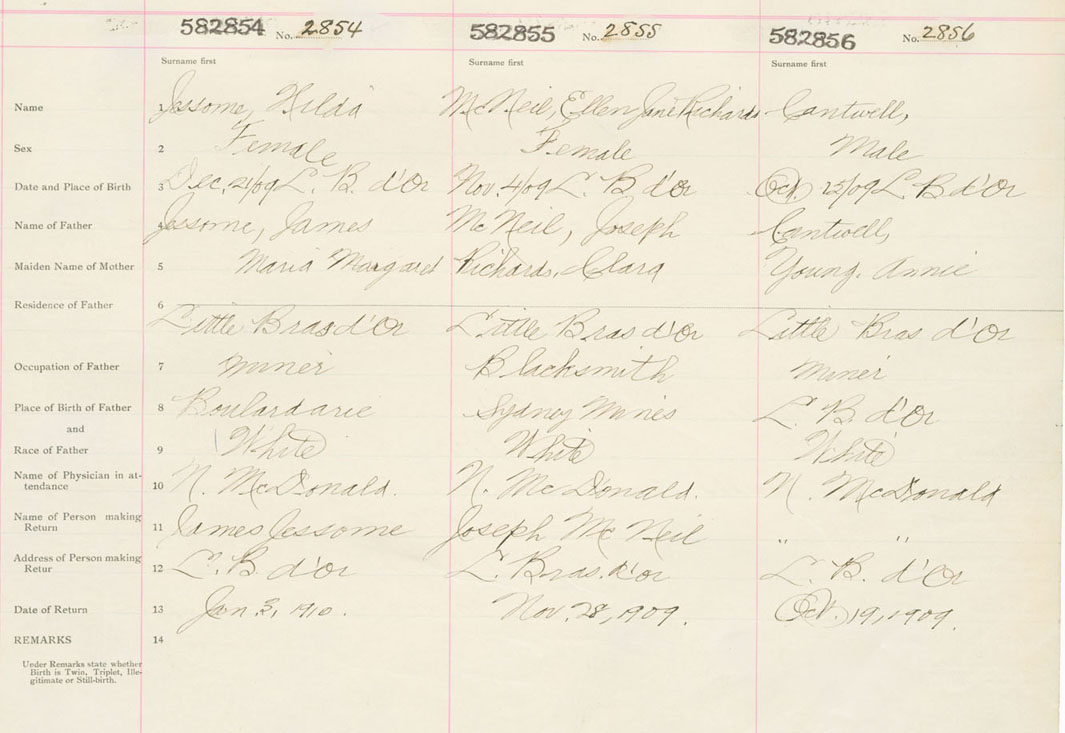 582854 No. 2854 582855 No. 2855 582856 No. 2856
Surname first Surname first Surname first
Name 1 Jessome, Hilda McNeil, Ellen Jane Richards Cantwell,
Sex 2 Female Female Male
Date and Place of Birth 3 Dec. 21/09 L. B. d'Or Nov. 4/09 L. B d'Or Oct. 15/09 L B d'Or
Name of Father 4 Jessome, James McNeil, Joseph Cantwell,
Maiden Name of Mother 5 Maria Margaret Richards, Clara Young, Annie
Residence of Father 6
Little Bras d'Or Little Bras d'Or Little Bras d'Or
Occupation of Father 7 Miner Blacksmith Miner
Place of Birth of Father 8 Boulardarie Sydney Mines L. B. d'Or
and
Race of Father 9 White White White
Name of Physician in at-
tendance 10 N. McDonald. N. McDonald. N. McDonald
Name of Person making
Return 11 James Jessome Joseph McNeil " "
Address of Person making
Retur 12 L. B. d'Or L. Bras. d'or L. B. d'Or
Date of Return 13 Jan 3, 1910. Nov. 28, 1909. Oct. 19, 1909.
REMARKS 14
Under Remarks state whether
Birth is Twin, Triplet, Ille-
gitimate or Still-birth.